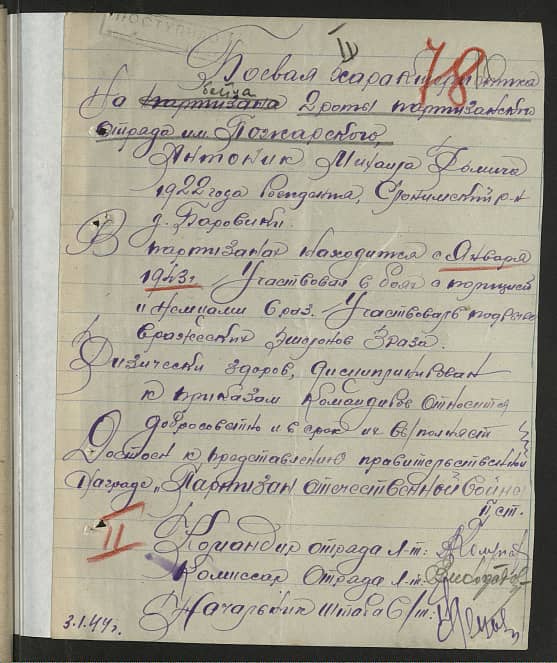 ПОСТУПИЛ
III
78
Боевая характеристика
бойца
На партизана 2 роты партизанского
отряда им. Пожарского,
Антоник Михаила Фомича
1922 года рождения, Слонимский р-н
д. Баровики.
В партизанах находится с Января
1943 г. Участвовал в боях с полицией
и немцами 6 раз. Участвовал в подрыве
вражеских эшелонов 3 раза.
Физически здоров, дисциплинирован
к приказам командиров относится
добросовестно и в срок их выполняет
Достоен к представлению правительственной
награде „Партизан отечественной войны
II ст.
II
Командир отряда л-т:
Комиссар отряда л-т:
Начальник штаба с/т:
3.1.44 г.